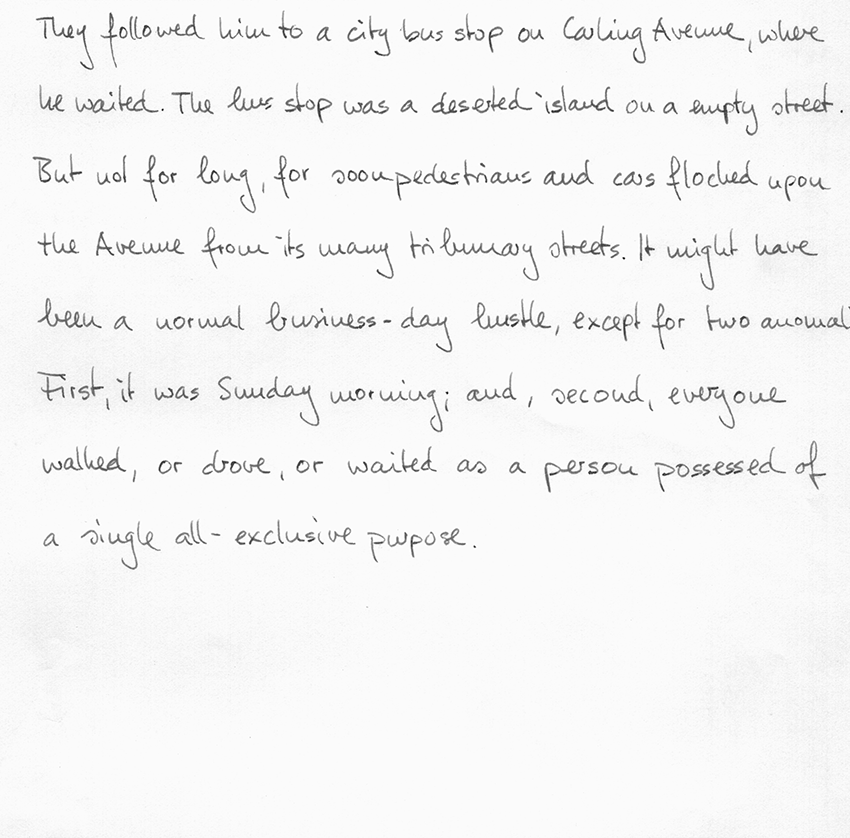 They followed him to a city bus stop on Carling Avenue, where
he waited. The bus stop was a deserted island on a empty street.
But not for long, for soon pedestrians and cars flocked upon
the Avenue from its many tribunary streets. It might have
been a normal business-day hustle, except for two anomal
First, it was Sunday morning; and, second, everyone
walked, or drove, or waited as a person possessed of
a single all-exclusive purpose.